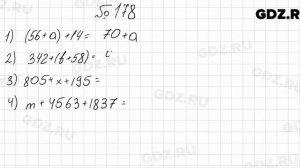 № 178
GDZ.RU
1) (56+a)+14= 70+a
2) 342+(b+58)=
3) 805+x+195=
4) m+4563+1837=